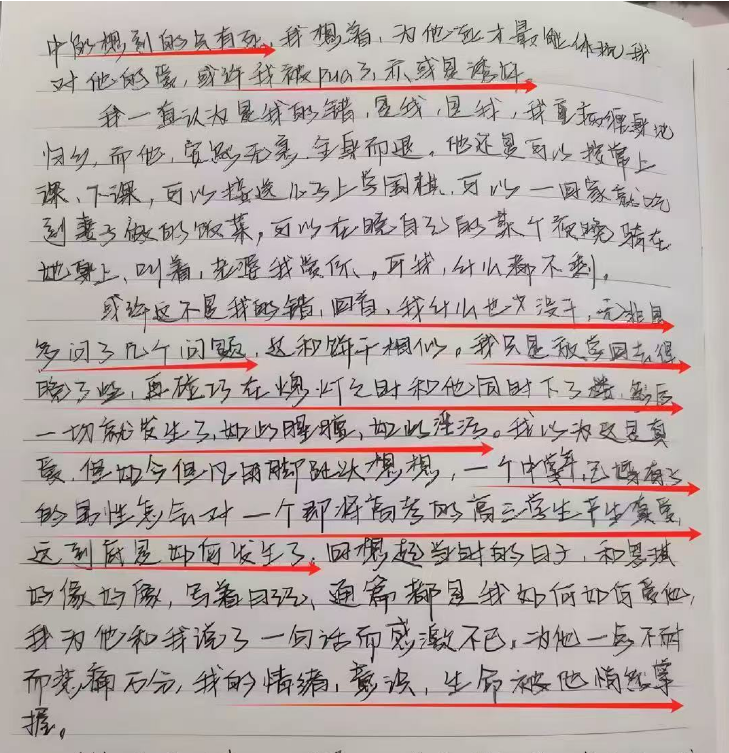 中的想到的只有死，我想着，为他死才最能体现我
对他的爱，或许我被pua了，亦或是诱奸。
我一直认为是我的错，是我，是我，我重病缠身地
归乡，而他，安然无恙，全身而退。他还是可以按常上
课、下课，可以接送儿子上学围棋，可以一回家就吃
到妻子做的饭菜，可以在晚自习的某个夜晚骑在
她身上，叫着，老婆我爱你，可我，什么都不剩。
或许这不是我的错，回首，我什么也没干，无非是
多问了几个问题，这和饼干相似。我只是放学回去得
晚了些，再碰巧在熄灯之时和他同时下了楼，然后
一切就发生了，如此腥膻，如此淫污。我以为这是真
爱，但如今但凡用脚趾头想想，一个中年，已婚有子
的男性怎会对一个即将高考的高三学生产生真爱，
这到底是如何发生了，回想起当时的日子，和思琪
好像好像，写着日记，通篇都是我如何如何爱他，
我为他和我说了一句话而感激不已，为他一点不耐
而悲痛万分，我的情绪，意识，生命被他悄然掌
握。